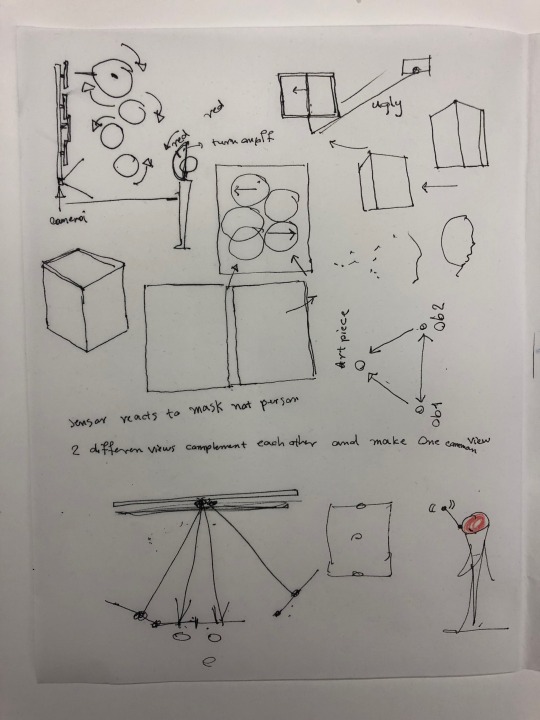 red
red
turn on/off
camera
ugly
Art piece
Ob2
Ob1
sensor reacts to mask not person
2 differen views complement each other and make One common view
e